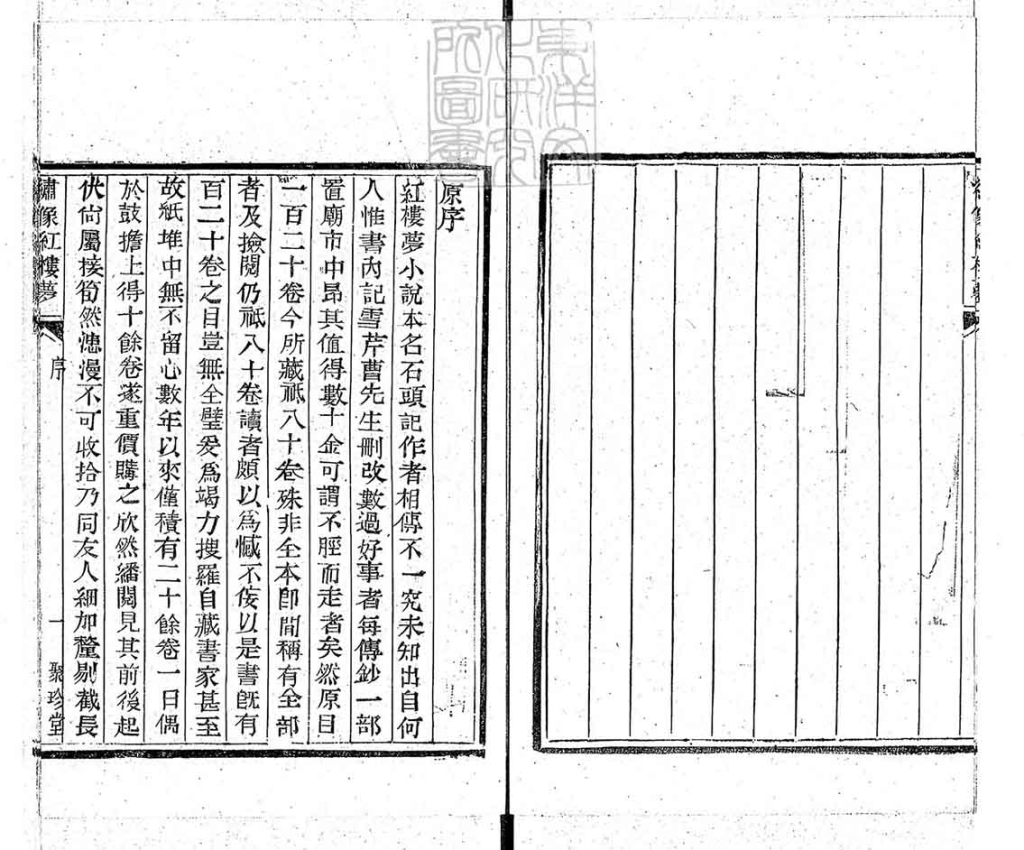 東洋文
化研究
所圖書
原序
紅樓夢小說本名石頭記作者相傳不一究未知出自何
人惟書內記雪芹曹先生刪改數過好事者每傳鈔一部
置廟市中昻其值得數十金可謂不脛而走者矣然原目
一百二十卷今所藏祗八十卷殊非全本卽間稱有全部
者及撿閱仍祗八十卷讀者頗以爲憾不佞以是書旣有
百二十卷之目豈無全璧爰爲竭力搜羅自藏書家甚至
故紙堆中無不留心數年以來僅積有二十餘卷一日偶
於鼓擔上得十餘卷遂重價購之欣然繙閱見其前後起
伏尙屬接筍然漶漫不可收拾乃同友人細加釐剔截長
繡像紅樓夢 序 一 聚珍堂